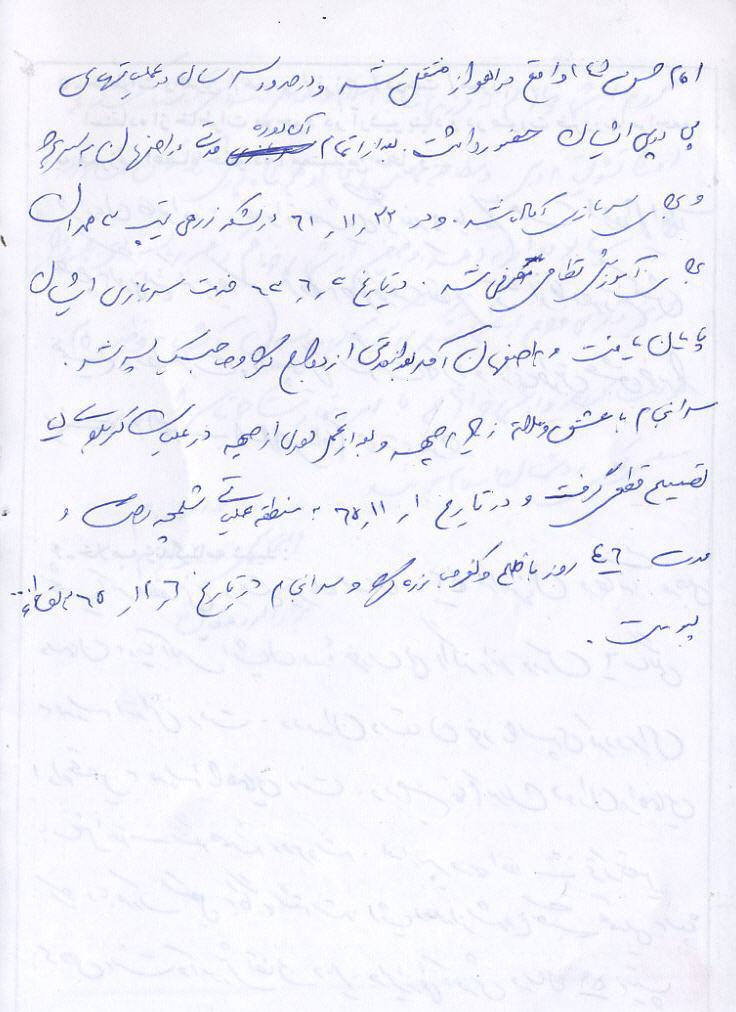 امام حسن (ع) واقع در اهواز منتقل شد و در حدود سه سال در عملیتهای
پی در پی ایشان حضور داشت. بعد از اتمام آن دوره مدتی در اصفهان بسر برد
و برای سربازی آماده شد. و در ۲۲ر۱۱ر۶۱ در لشکر زرهی تیپ ۳ همدان
برای آموزش نظامی معرفی شد. در تاریخ ر۶ر۶۳ خدمت سربازی ایشان
پایان یافت و به اصفهان آمد بعد از مدتی ازدواج کرد و صاحب یک پسر شد.
سرانجام با عشق و علاقه زیاد به جبهه و بعد از تحمل دوری از جبهه در عملیات کربلای
تصمیم قطعی گرفت و در تاریخ ۱ر۱۱ر۶۵ به منطقه عملیاتی شلمچه رفت و
مدت ۴۶ روز با ظلم و کفر مبارزه کرد و سرانجام در تاریخ ۶ر۱۲ر۶۵ به لقاءالله
پیوست.